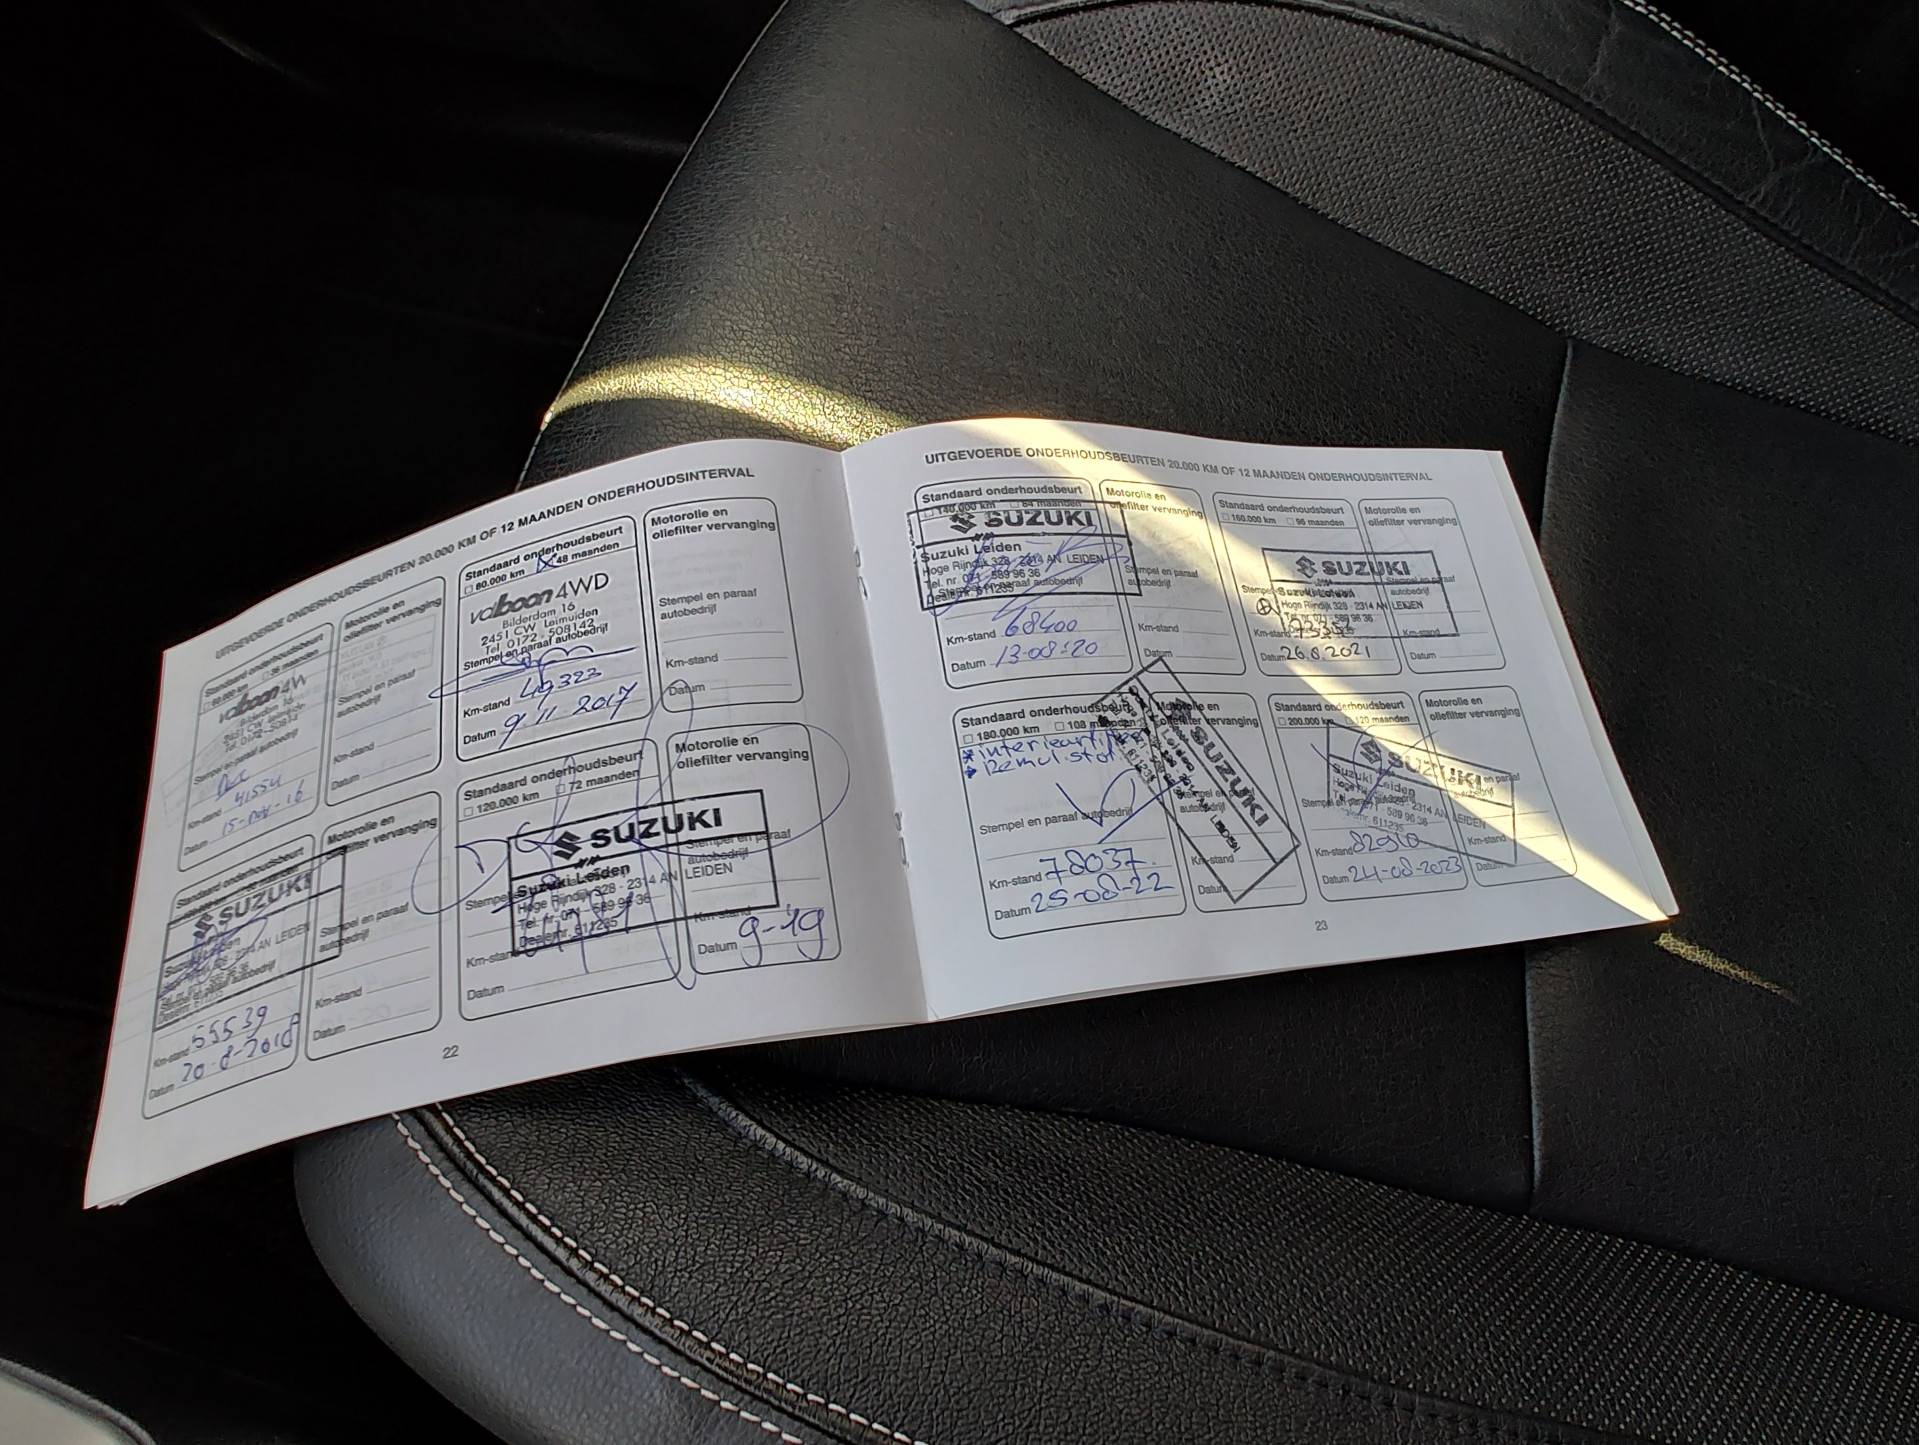 UITGEVOERDE ONDERHOUDSBEURTEN 20.000 KM OF 12 MAANDEN ONDERHOUDSINTERVAL
Standaard onderhoudsbeurt
36 maanden
valboon 4W
Bilderdam 16
Stempel en paraaf autobedrijf
Km-stand 41554
Datum 15-nov-16
Motorolie en
oliefilter vervanging
Stempel en paraaf
autobedrijf
Km-stand
Datum
Standaard onderhoudsbeurt
80.000 km 48 maanden
valboon 4WD
Bilderdam 16
2451 CW Leimuiden
Tel. 0172 - 508142
Stempel en paraaf autobedrijf
Km-stand 49323
Datum 9 11 2017
Motorolie en
oliefilter vervanging
Stempel en paraaf
autobedrijf
Km-stand
Datum
Standaard onderhoudsbeurt
SUZUKI
Km-stand 55539
Datum 20-8-2018
Motorolie en
oliefilter vervanging
Stempel en paraaf
autobedrijf
Km-stand
Datum
Standaard onderhoudsbeurt
120.000 km 72 maanden
SUZUKI
Suzuki Leiden
Hoge Rijndijk 328 - 2314 AN LEIDEN
Tel. nr. 071 - 589 96 36
Dealernr. 611235
Km-stand
Datum
Motorolie en
oliefilter vervanging
Stempel en paraaf
autobedrijf
Km-stand
Datum 9-19
22
UITGEVOERDE ONDERHOUDSBEURTEN 20.000 KM OF 12 MAANDEN ONDERHOUDSINTERVAL
Standaard onderhoudsbeurt
140.000 km 84 maanden
SUZUKI
Suzuki Leiden
Hoge Rijndijk 328 - 2314 AN LEIDEN
Tel. nr. 071 - 589 96 36
Stempel en paraaf autobedrijf
Dealernr. 611235
Km-stand 68400
Datum 13-08-20
Motorolie en
oliefilter vervanging
Stempel en paraaf
autobedrijf
Km-stand
Datum
Standaard onderhoudsbeurt
160.000 km 96 maanden
SUZUKI
Suzuki Leiden
Hoge Rijndijk 328 - 2314 AN LEIDEN
Km-stand
Datum 26.8.2021
Motorolie en
oliefilter vervanging
Stempel en paraaf
autobedrijf
Km-stand
Datum
Standaard onderhoudsbeurt
180.000 km 108 maanden
SUZUKI
Stempel en paraaf autobedrijf
Km-stand 78037
Datum 25-08-22
Motorolie en
oliefilter vervanging
Stempel en paraaf
autobedrijf
Km-stand
Datum
Standaard onderhoudsbeurt
200.000 km 120 maanden
SUZUKI
Suzuki Leiden
Stempel en paraaf autobedrijf
Km-stand
Datum 24-08-2023
Motorolie en
oliefilter vervanging
Km-stand
Datum
23